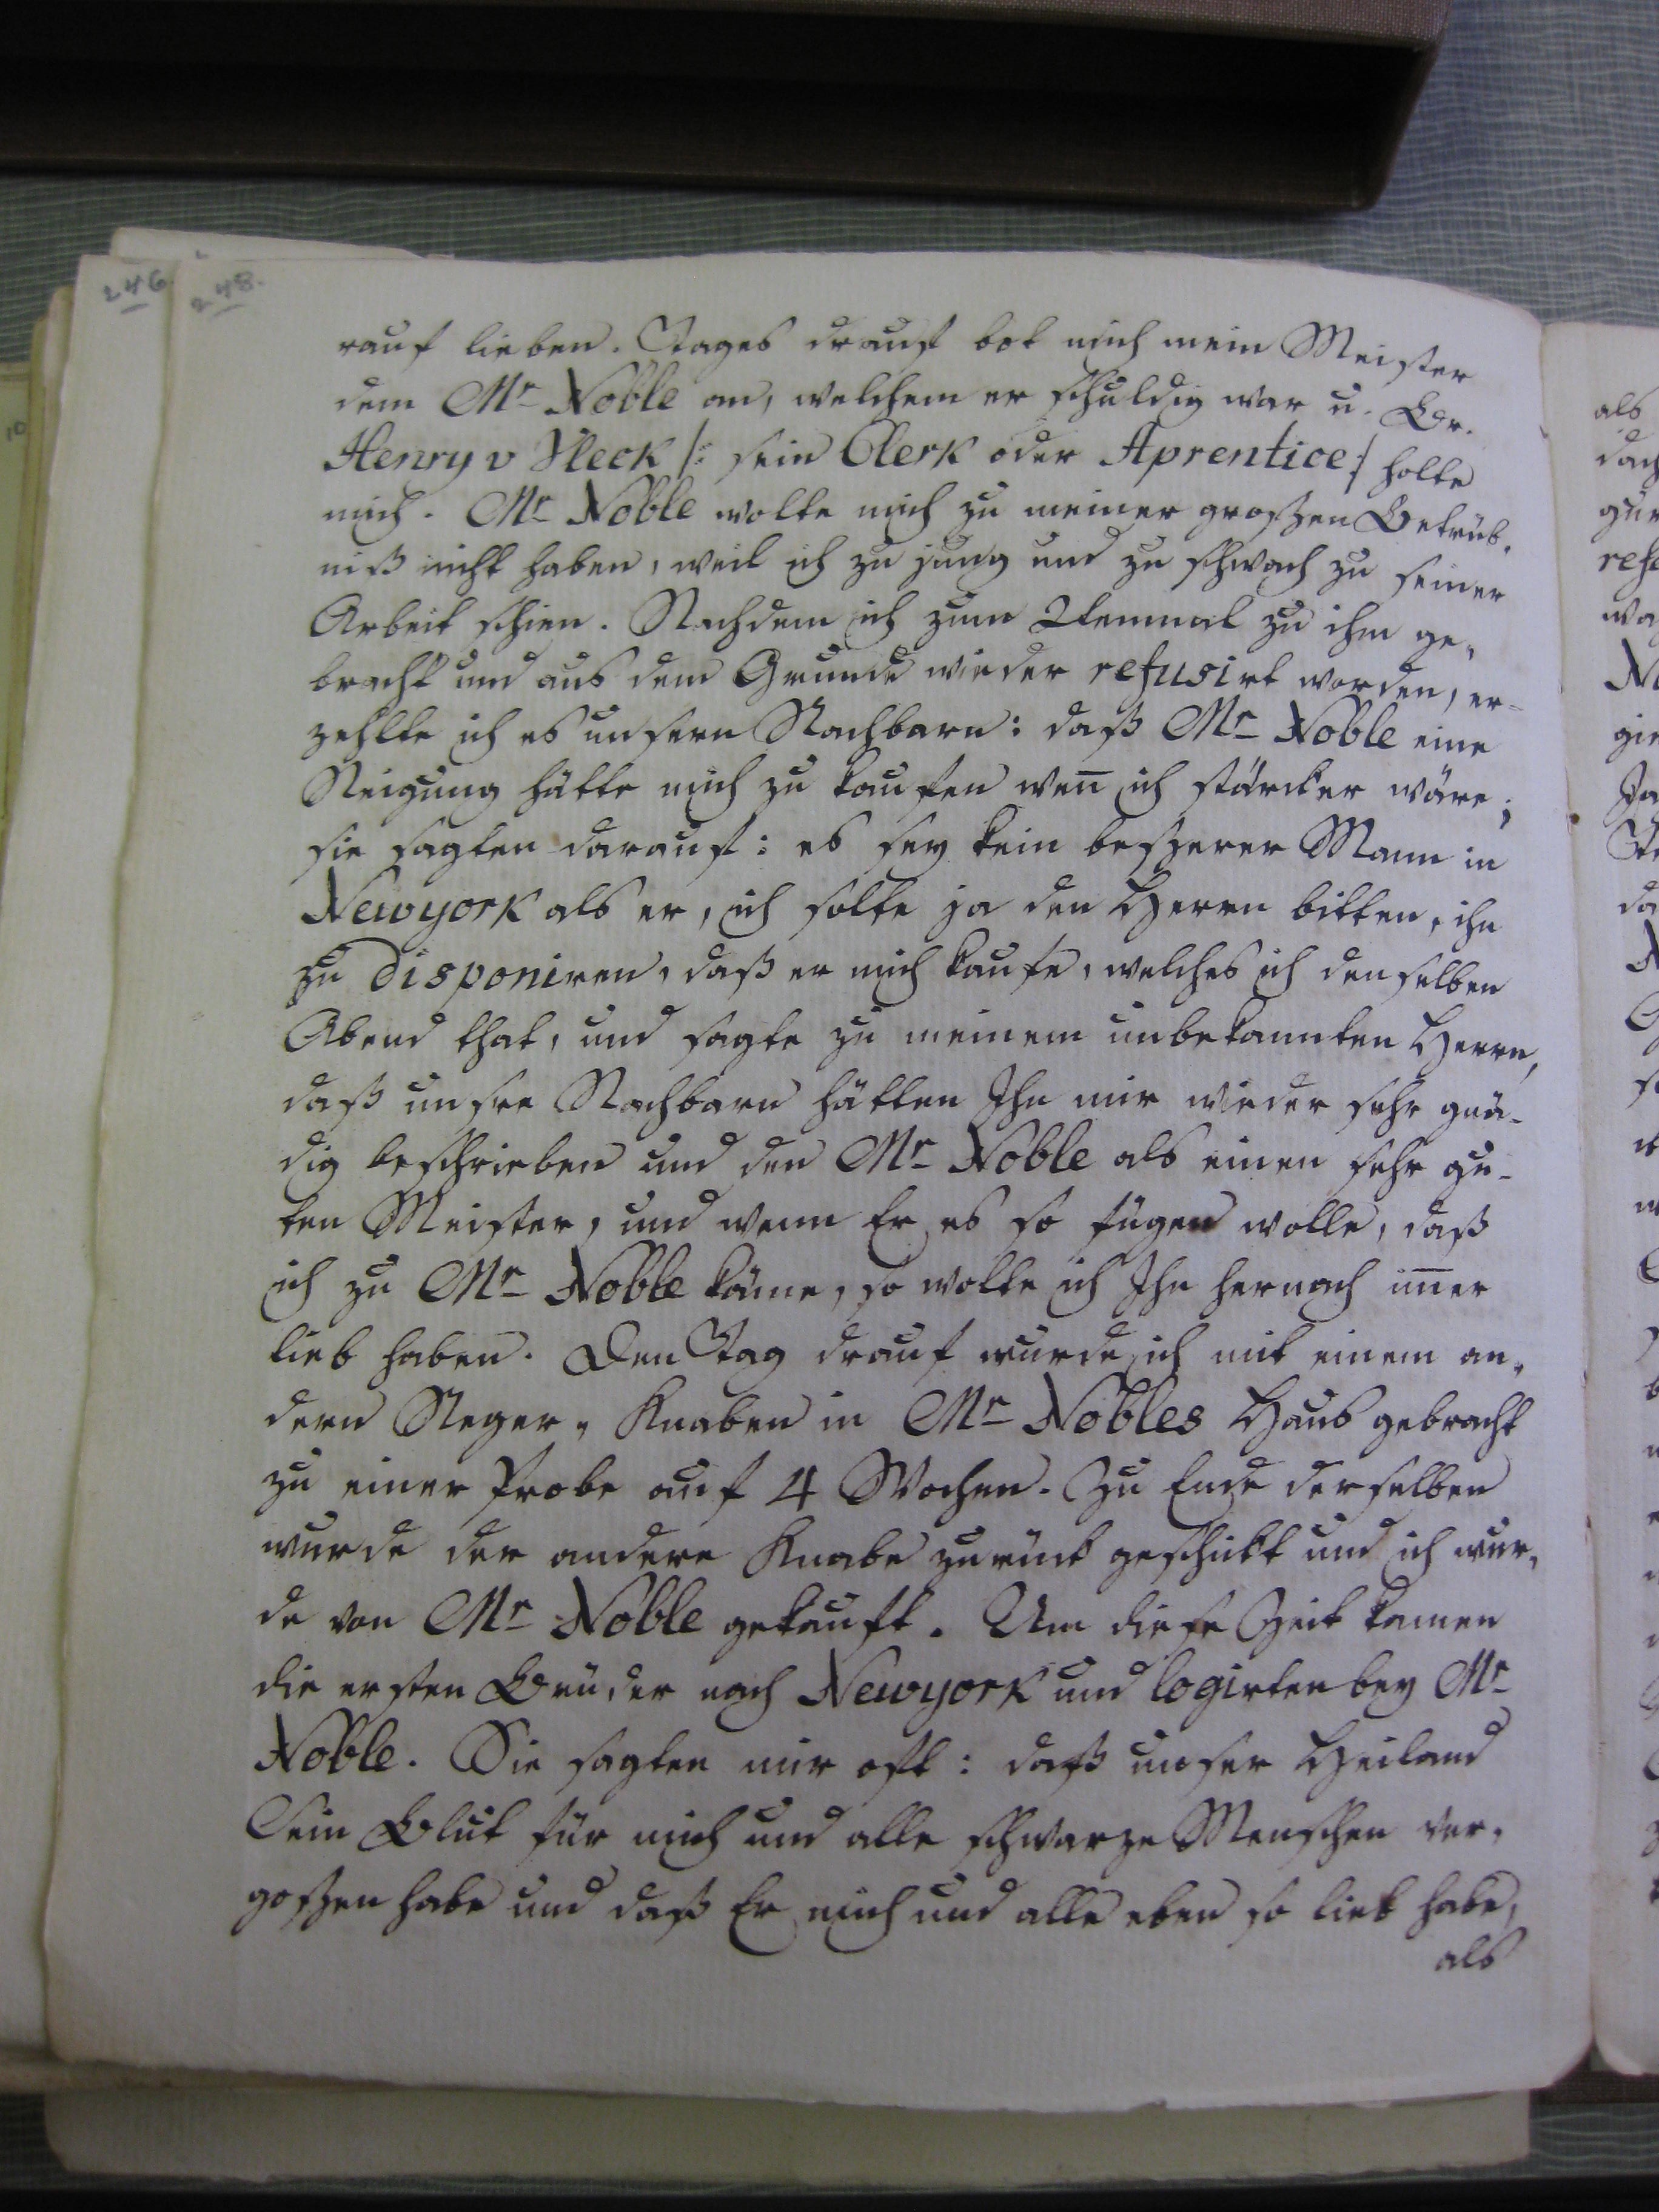 246.
248.
rauf lieben. Tages drauf bot mich mein Meister
dem Mr Noble an, welchem er schuldig war u. Br.
Henry v Vleck /: sein Clerk oder Aprentice :/ holte
mich. Mr Noble wolte mich zu meiner großen Betrüb-
niß nicht haben, weil ich zu jung und zu schwach zu seiner
Arbeit schien. Nachdem ich zum 2tenmal zu ihm ge-
bracht und aus dem Grunde wieder refusirt worden, er-
zehlte ich es unsern Nachbarn: daß Mr Noble eine
Neigung hätte mich zu kaufen weñ ich stärcker wäre;
sie sagten darauf: es sey kein beßerer Mann in
Newyork als er, ich solte ja den Herrn bitten, ihn
zu disponiren, daß er mich kaufe, welches ich denselben
Abend that, und sagte zu meinem unbekannten Herrn,
daß unsre Nachbarn hätten Ihn mir wieder sehr gnä-
dig beschrieben und den Mr Noble als einen sehr gu-
ten Meister, und wenn Er es so fügen wolle, daß
ich zu Mr Noble käme, so wolte ich Ihn hernach im̄er
lieb haben. Den Tag drauf wurde ich mit einem an-
dern Neger-Knaben in Mr Nobles Haus gebracht
zu einer Probe auf 4 Wochen. Zu Ende derselben
wurde der andere Knabe zurück geschickt und ich wur-
de von Mr Noble gekauft. Um diese Zeit kamen
die ersten Brüder nach Newyork und logirten bey Mr
Noble. Sie sagten mir oft: daß unser Heiland
Sein Blut für mich und alle schwarze Menschen ver-
goßen habe und daß Er mich und alle eben so lieb habe,
als